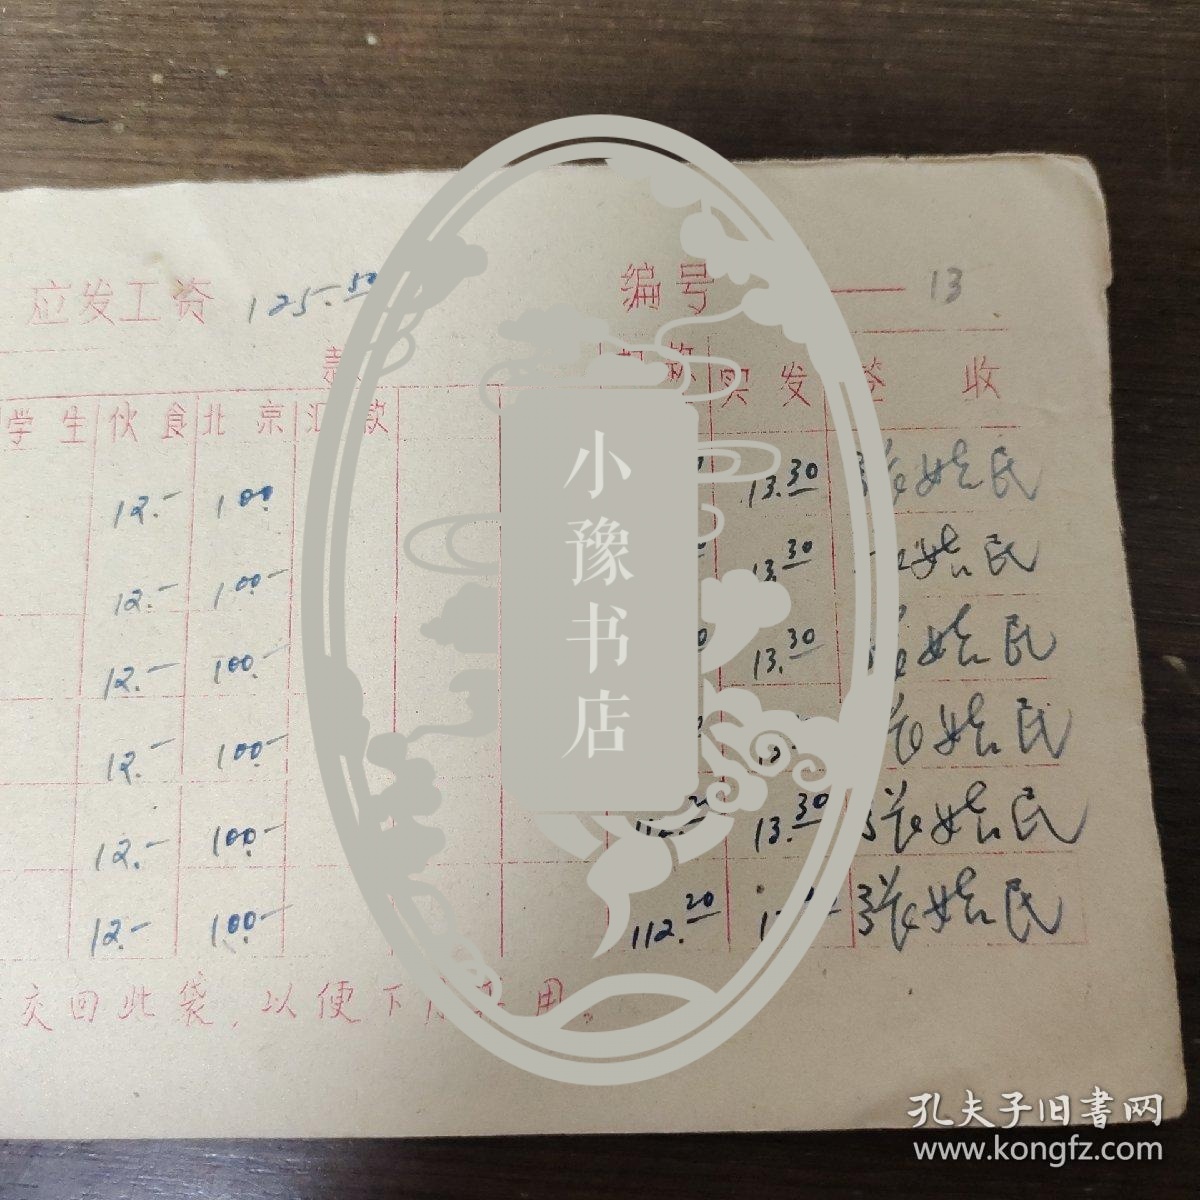 应发工资 125.50 编号 —— 13
款 实发 签 收
学生 伙食 北京 汇款
12.- 100 13.30 张姞民
12.- 100- 13.30 张姞民
12.- 100- 13.30 张姞民
12.- 100- 张姞民
12.- 100- 13.30 张姞民
12.- 100- 112.20 张姞民
交回此袋，以便下 用。
小豫书店
孔夫子旧書网
www.kongfz.com